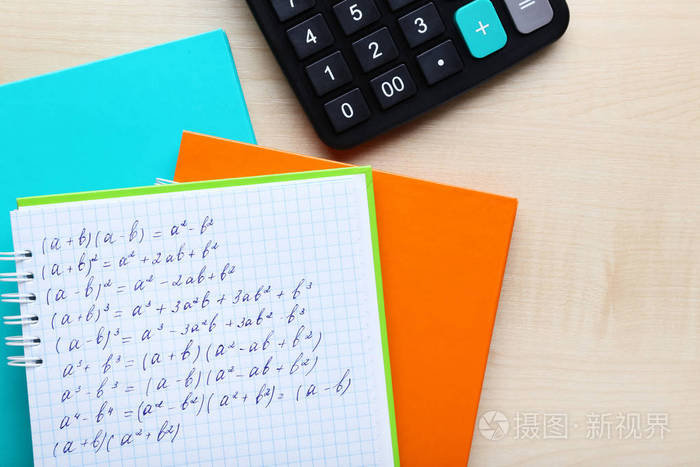 4 5
1 2 3 + =
0 00 .
(a+b)(a-b) = a²-b²
(a+b)² = a²+2ab+b²
(a-b)² = a²-2ab+b²
(a+b)³ = a³+3a²b+3ab²+b³
(a-b)³ = a³-3a²b+3ab²-b³
a³+b³ = (a+b)(a²-ab+b²)
a³-b³ = (a-b)(a²-ab+b²)
a⁴-b⁴ = (a²-b²)(a²+b²) = (a-b)
(a+b)(a²+b²)
摄图网·新视界